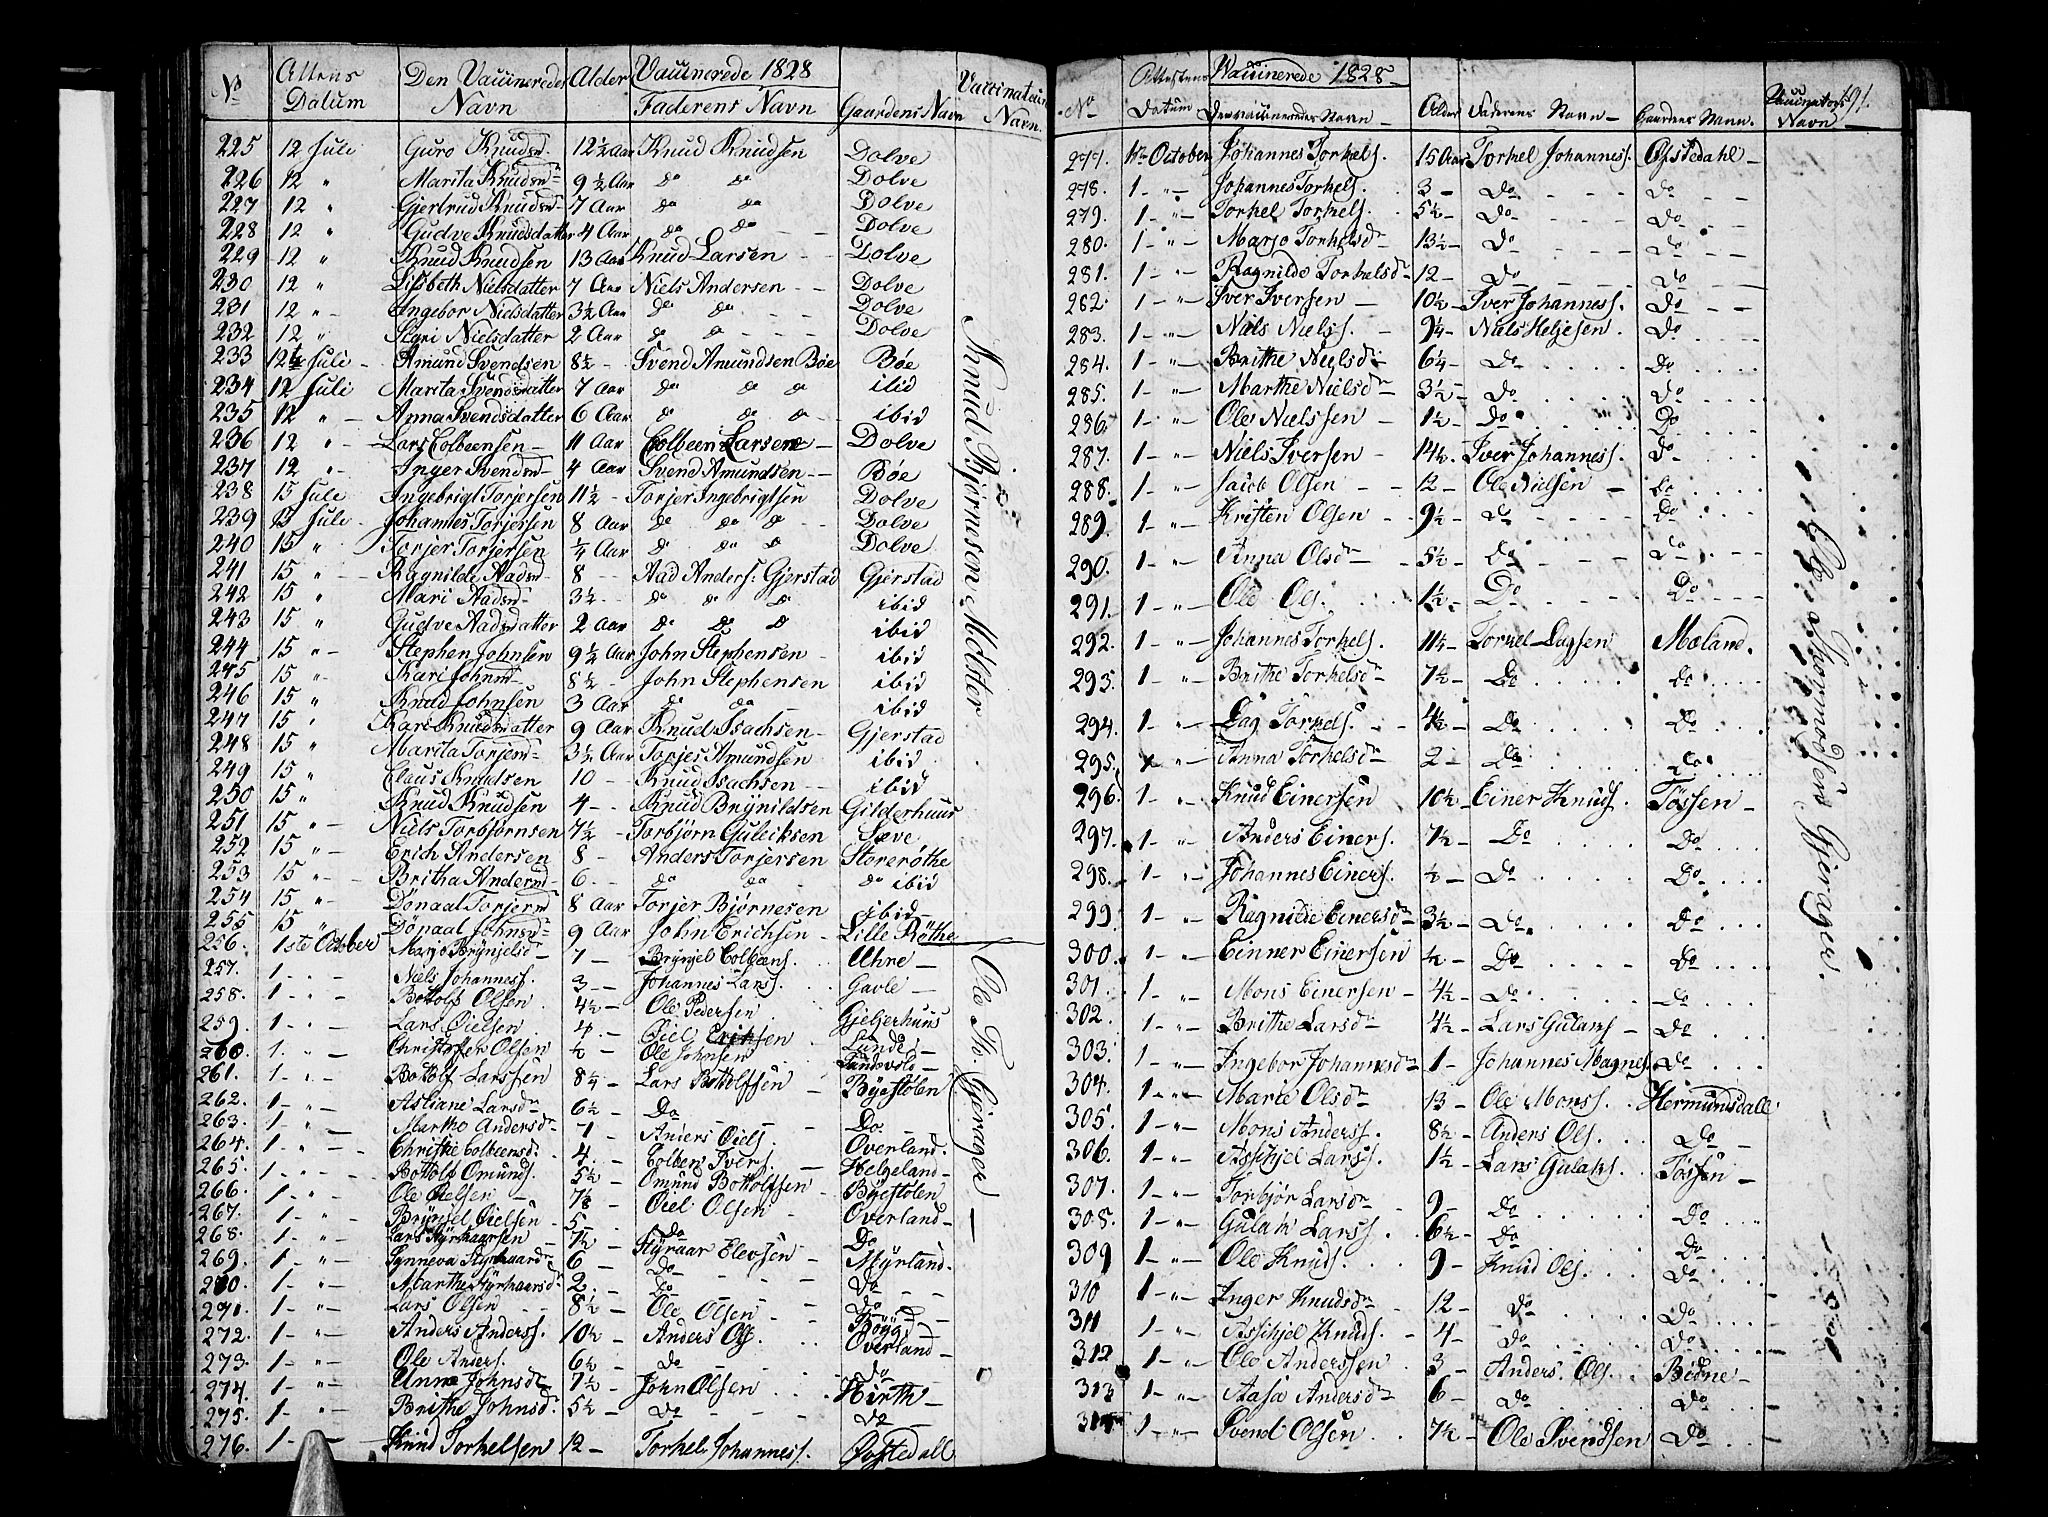 No Attens Datum Den Vaccineredes Navn Alder Vaccinerede 1828 Faderens Navn Gaardens Navn Vaccinateurs Navn
225 12 Juli Guro Knudsd. 12½ Aar Knud Knudsen Dolve
226 12 " Marita Knudsd. 9½ Aar do do Dolve
227 12 " Gjertrud Knudsd. 7 Aar do do Dolve
228 12 " Gudve Knudsdatter 4 Aar do do - - Dolve
229 12 " Knud Knudsen 13 Aar Knud Larsen - - Dolve
230 12 " Lisbeth Nielsdatter 7 Aar Niels Andersen - - Dolve
231 12 " Ingebor Nielsdatter 3½ Aar do do - - Dolve
232 12 " Sari Nielsdatter 2 Aar do do - - - Dolve
233 12 Juli - Amund Svendsen 8½ - Svend Amundsen Bøe Bøe
234 12 Juli Marita Svendsdatter 7 Aar do do do ibid
235 12 " - Anna Svendsdatter 6 Aar do do do - ibid
236 12 " - Lars Colbeensen - 11 Aar Colbeen Larsen - Dolve
237 12 " - Inger Svendsd. 4 Aar Svend Amundsen - Bøe
238 15 Jule Ingebrigt Torjersen 11½ - Torjer Ingebrigtsen Dolve
239 15 Jule - Johannes Torjersen 8 Aar do do do - - Dolve
240 15 " Torjer Torjersen ¼ Aar do do do Dolve
241 15 " - - Ragnilde Aadsd. 8 - - Aad Anders: Gjerstad Gjerstad
242 15 " Mari Aadsd. 3½ - - do do do ibid
243 15 " Gudve Aadsdatter 2 Aar do do do ibid
244 15 " - Stephen Johnsen 9½ Aar John Stephensen - ibid
245 15 " - Kari Johnsd. 8½ - John Stephensen ibid
246 15 " Knud Johnsen 3 Aar do do ibid
247 15 " Kari Knudsdatter 9 Aar Knud Isachsen - Gjerstad
248 15 " Marita Torjesd. 3½ Aar Torjes Amundsen ibid
249 15 " Claus Knudsen 10 - Knud Isachsen - - ibid
250 15 " Knud Knudsen 4 - - Knud Brynildsen Gilderhuus
251 15 " - Niels Torbjørnsen 7½ - Torbjørn Gulleiksen Sæve
252 15 " - Erich Andersen 8 - Anders Torjersen Storerøthe
253 15 " - - Britha Andersd. 6. - - do do do ibid
254 15 " - Dönaal Torjersd. 8 Aar Torjer Bjørnesen ibid
255 15 " - Dönaal Johnsd. 9 Aar John Erichsen - Lille Røthe
256. 1ste October Marjo Brynjelsd. 7 - Brynjel Colbeens. Uhre -
257. 1 - " - Niels Johanness. 3 - - Johannes Lars. Gavle -
258. 1 - " - Bottolf Olsen 4½ - Ole Pedersen Gjeljerhuus
259. 1 - " - Lars Oielsen 4. - Oiel Eriksen Lunde -
260. 1. " - Christopher Olsen ½ - Ole Johnsen Tundevold -
261. 1 - " - Bottolf Larssen 8¼ - Lars Bottolfsen Byestølen
262. 1 - " - Astiane Larsdr 6½ - Do - - - Do -
263. 1 - " - Martho Andersdr 7 - Anders Oiels. Overland.
264. 1 - " - Christhe Colbeensd. 4. - Colben Ivers. - Helgeland -
265. 1 - " - Bottolf Omunds. 5½ - Omund Bottolfsen Byestølen
266. 1 - " - Ole Oielsen - 7⅛ Oiel Olsen Overland -
267. 1 - " - Brynjel Oielsen 5 - Do Do
268. 1 - " - Lars Styrkaarsen 7½ - Styraar Elevsen Myrland.
269. 1 - " - Synneva Styrkaarsdr 6 - Do - - - - Do - -
270. 1 - " - Marthe Styrkaarsd. 2. - Do - - Do
271. 1 - " - Lars Olsen - - 8½ - Ole Olsen - Bøyd -
272. 1 - " - Anders Anders. 10½ - Anders Ols. Overland -
273. 1 - " - Ole Anders. 6½ - Do - - - Do -
274. 1 - " - Anna Johnsd. 7½ - John Olsen Hirth -
275. 1 - " - Brithe Johnsd. 5½ - Do - - - Do -
276. 1 - " - Knud Torkelsen 12 - Torkel Johanness. Øvstedall
Knud Bjørnesen Molster
Ole Th. Gjerager -
No Attestens Datum Vaccinerede 1828 Den vaccineredes Navn - Alder Faderens Navn - Gaardens Navn Vaccinators Navn 191.
277. 1ste October Johannes Torkels. 15 Aar Torkel Johanness. Øfstedahl -
278. 1 - " - Johannes Torkels. 3 - Do - - - Do - -
279. 1 - " - Torkel Torkels. 5½ - Do - - - Do - -
280. 1 - " - Marjo Torkelsdr 13½ - Do - - - Do - -
281. 1 - " - Ragnilde Torkelsdr 12 - Do - - - Do - - -
282. 1 - " - Iver Iversen - 10½ - Iver Johanness. Do - -
283. 1 - " - Niels Niels. - 9¼ - Niels Heljesen. Do
284. 1 - " - Brithe Nielsdr 6¼ - Do . . . . Do . . . .
285. 1 - " - Marthe Nielsdr 3½ - Do . . . . Do . . . .
286. 1 - " - Ole Nielssen 1½ - Do . . . . Do . . . .
287. 1 - " - Niels Iversen - 14½. Iver Johanness. Do - . . .
288. 1 - " - Jacob Olsen - - 12 - Ole Nielsen - Do . . . .
289. 1 - " - Kristen Olsen - - 9½ - Do - - - Do . . . .
290. 1 - " - Anna Olsdr - 5½ - Do - - - Do - . . .
291. 1 - " - Ole Ols. . 1½ - Do - - - Do - . . .
292. 1 - " - Johannes Torkels. 11½ - Torkel Dagsen Mæland.
293. 1 - " - Brithe Torkelsdr 7½ - Do . . . . Do . . . .
294. 1 - " - Dag Torkels. - - 4½ - Do . . . . Do . . . .
295. 1 - " - Anna Torkelsdr 2 - Do . . . . Do . . . .
296. 1 - " - Knud Einersen 10½ - Einer Knuds. Tøssen -
297. 1 - " - Anders Einers. 7½ - Do . . . Do . . . .
298. 1 - " Johannes Einers. ½ - Do . . . Do . . . .
299. 1 - " - Ragnilde Einersdr 3½ - Do . . . Do . . .
300. 1 - " - Einner Einersen ½ - Do . . . . Do . . . .
301. 1 - " - Mons Einersen - 4½ - Do . . . . Do . . . .
302. 1 - " - Brithe Larsdr 4½ - Lars Gulaks. - Do . . . .
303. 1 - " - Ingebor Johannesdr 1 - Johannes Magnes. Do . . .
304. 1 - " - Marie Olsdr 13 - Ole Mons. Hermundsdall
305. 1 - " - Mons Anders. 8½ - Anders Ols. . . Do -
306. 1 - " - Assihjel Lars. 1½ - Lars Gulaks. Tøssen -
307. 1 - " - Torbjør Larsdr 9 - Do . . . . Do . . . .
308. 1 - " - Gulak Lars. 6½ - Do . . . Do . . . .
309 1 - " - Ole Knuds. . . 9 - Knud Ols. . . . Do . . . .
310 1 - " - Inger Knudsdr 12 - Do . . . . Do . . . .
311 1 - " - Assihjel Knuds. - 4 - Do . . . . Do . . . .
312 1 - " - Ole Anderssen . 3 - Anders. Ols. . . Bidne -
313 1 - " - Aasa Andersdr 6 - Do . . . . Do . . . .
314 1 - " - Svend Olsen . . 7½ - Ole Svendsen Do . . . .
Ole Thormodsen Gjerager.